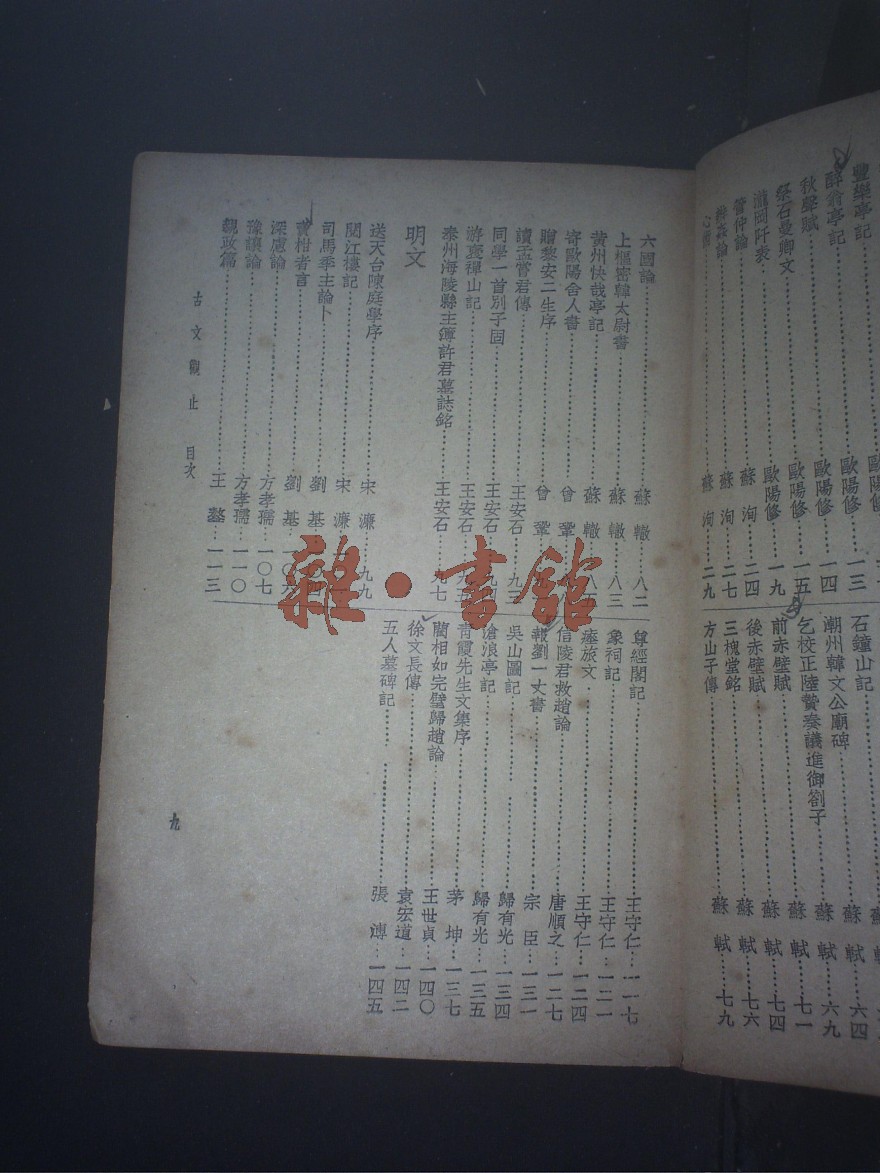 豐樂亭記
醉翁亭記⋯⋯歐陽修⋯一三
秋聲賦⋯⋯歐陽修⋯一四
祭石曼卿文⋯⋯歐陽修⋯一五
瀧岡阡表⋯⋯歐陽修⋯一九
管仲論⋯⋯蘇 洵⋯二四
辨姦論⋯⋯蘇 洵⋯二七
心術⋯⋯蘇 洵⋯二九
石鐘山記⋯⋯蘇 軾⋯六四
潮州韓文公廟碑⋯⋯蘇 軾⋯六九
乞校正陸贄奏議進御劄子⋯⋯蘇 軾⋯七一
前赤壁賦⋯⋯蘇 軾⋯七四
後赤壁賦⋯⋯蘇 軾⋯七六
三槐堂銘⋯⋯蘇 軾⋯七九
方山子傳⋯⋯蘇 軾
六國論⋯⋯蘇 轍⋯八二
上樞密韓太尉書⋯⋯蘇 轍⋯八三
黃州快哉亭記⋯⋯蘇 轍⋯八五
寄歐陽舍人書⋯⋯曾 鞏
贈黎安二生序⋯⋯曾 鞏
讀孟嘗君傳⋯⋯王安石⋯九三
同學一首別子固⋯⋯王安石⋯九四
游褒禪山記⋯⋯王安石⋯九五
泰州海陵縣主簿許君墓誌銘⋯⋯王安石⋯九七
明文
送天台陳庭學序⋯⋯宋 濂⋯九九
閱江樓記⋯⋯宋 濂
司馬季主論卜⋯⋯劉 基⋯一〇四
賣柑者言⋯⋯劉 基⋯一〇六
深慮論⋯⋯方孝孺⋯一〇七
豫讓論⋯⋯方孝孺⋯一一〇
親政篇⋯⋯王 鏊⋯一一三
尊經閣記⋯⋯王守仁⋯一一七
象祠記⋯⋯王守仁⋯一二一
瘞旅文⋯⋯王守仁⋯一二四
信陵君救趙論⋯⋯唐順之⋯一二七
報劉一丈書⋯⋯宗 臣⋯一三一
吳山圖記⋯⋯歸有光⋯一三四
滄浪亭記⋯⋯歸有光⋯一三五
青霞先生文集序⋯⋯茅 坤⋯一三七
藺相如完璧歸趙論⋯⋯王世貞⋯一四〇
徐文長傳⋯⋯袁宏道⋯一四二
五人墓碑記⋯⋯張 溥⋯一四五
古文觀止 目次
九
雜·書館